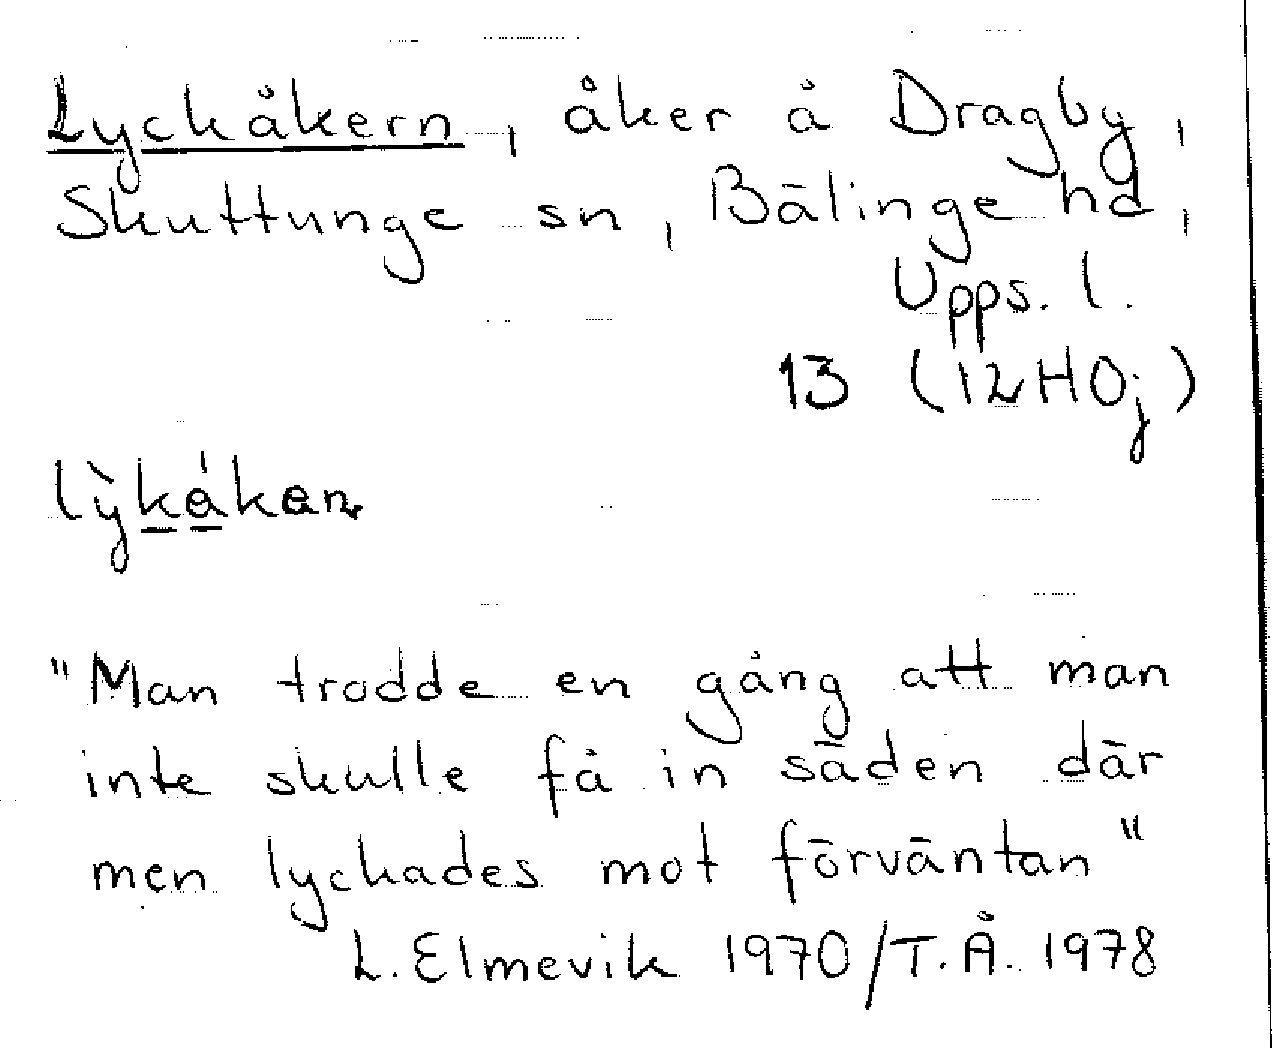 Lyckåkern, åker å Dragby,
Skuttunge sn, Bälinge hd,
Upps. l.
13 (12H0j)
lỳkåkan
"Man trodde en gång att man
inte skulle få in säden där
men lyckades mot förväntan"
L. Elmevik 1970/T.Å. 1978